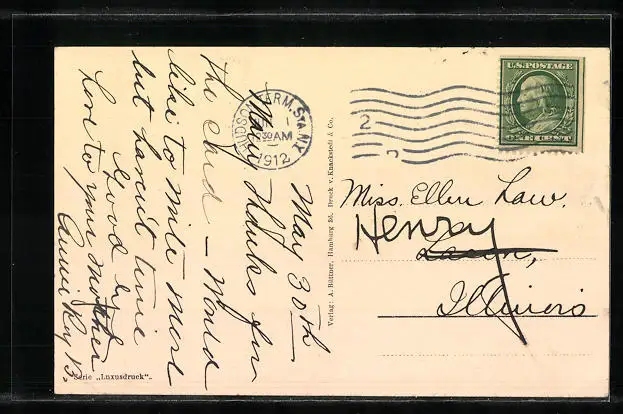 May 30th
Many thanks for
the card - Would
like to write more
but havn't time
Good by
Love to your mother
Annie Kay B.
HUDSON TERM. STA. N.Y.
1
30 AM
1912
2
U.S. POSTAGE
ONE CENT
Miss. Ellen Law.
Henry
Illinois
Verlag: A. Büttner, Hamburg 36. Druck v. Knackstedt & Co.
Serie „Luxusdruck"